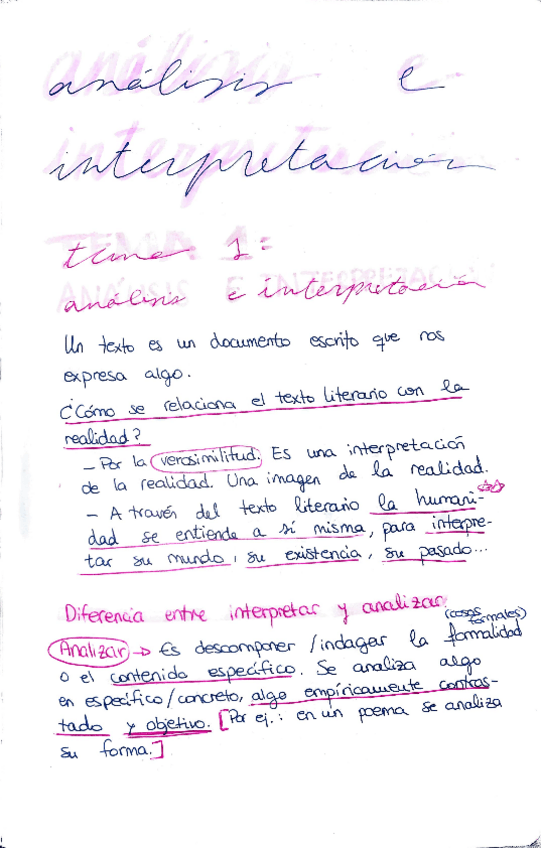 análisis e
interpretación
tema 1:
análisis e interpretación
Un texto es un documento escrito que nos
expresa algo.
¿Cómo se relaciona el texto literario con la
realidad?
- Por la verosimilitud. Es una interpretación
de la realidad. Una imagen de la realidad.
- A través del texto literario la humani-
dad se entiende a sí misma, para interpre-
tar su mundo, su existencia, su pasado...
Diferencia entre interpretar y analizar:
(cosas formales)
Analizar → Es descomponer/indagar la formalidad
o el contenido específico. Se analiza algo
en específico/concreto, algo empíricamente contras-
tado y objetivo. [Por ej.: en un poema se analiza
su forma.]